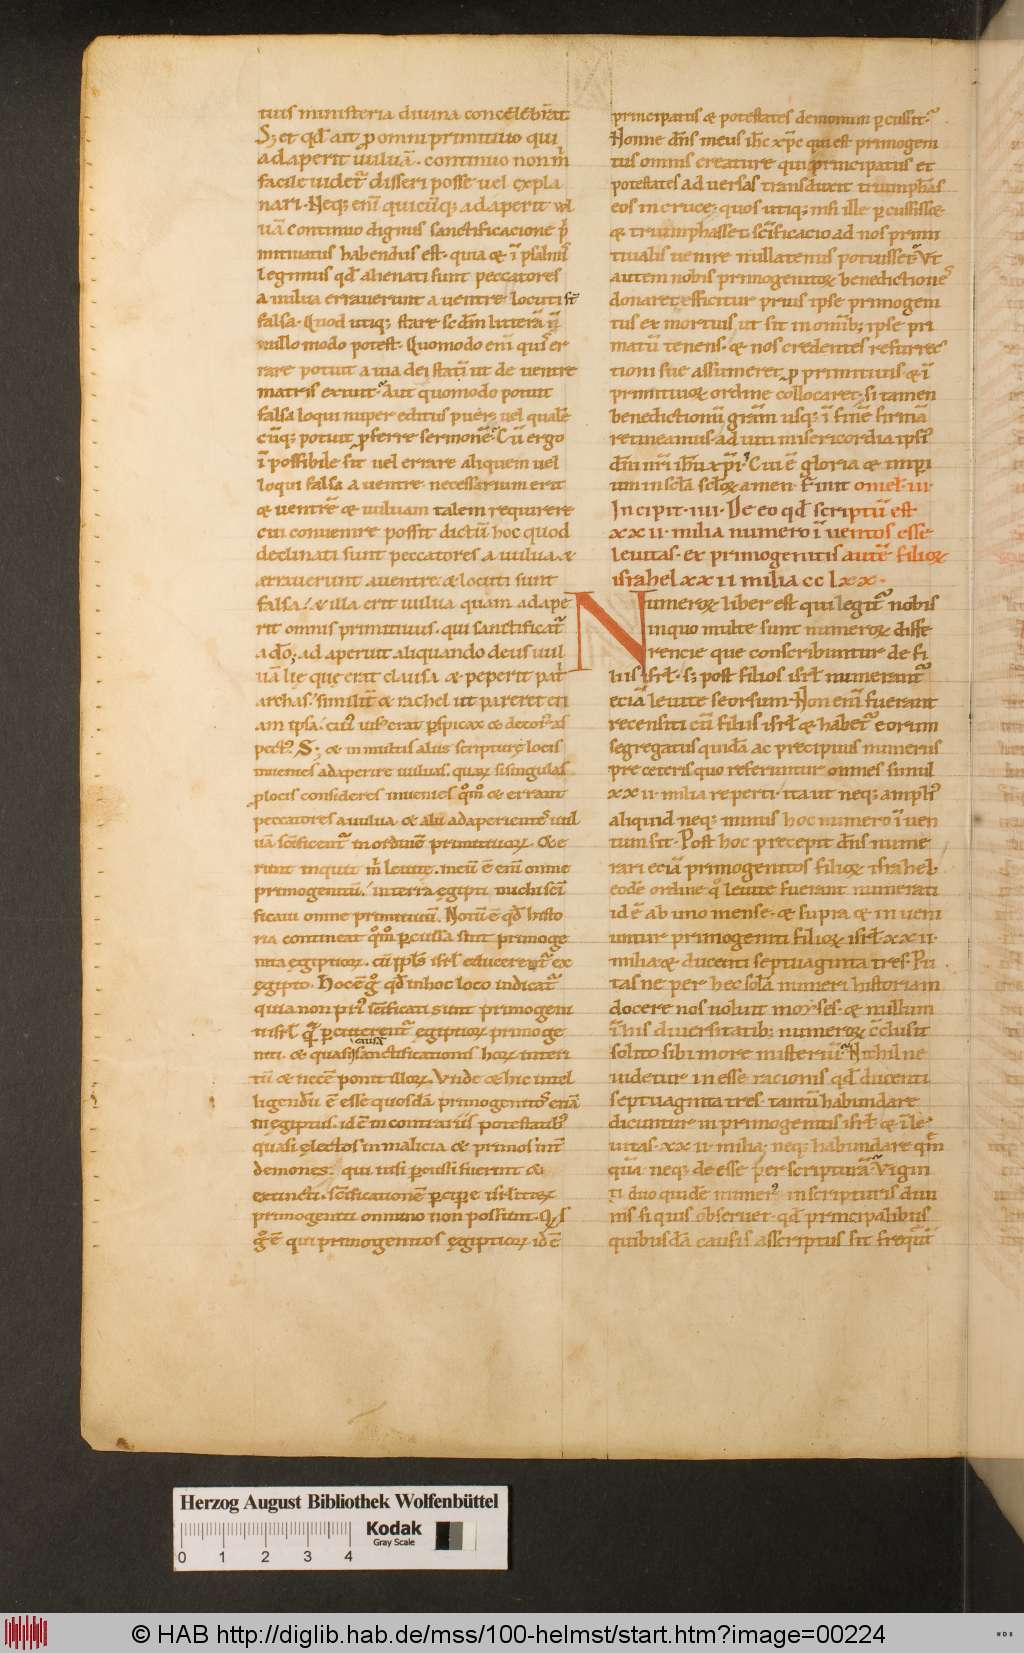 tuis ministeria divina concelebrat
S; et qđ ait ꝓ omni primitivo qui
adaperit vulvā. continuo non m̄
facile videt᷑ disseri posse vel expla
nari. Neq; eni᷑ quicūq; adaperit vul
vā continuo dignus sanctificacione p̄
mitivatus habendus est. quia & ī psalmis
legimus qđ alienati sunt peccatores
a vulva erraverunt a ventre locuti sт̄
falsa. Quod utiq; stare scđm litterā
nullo modo potest. Quomodo eni᷑ quis er
rare potuit a via dei statī ut de ventre
matris exivit. Aut quomodo potuit
falsa loqui nuper editus puer; vel qualē
cūq; potuit ꝓferre sermonē. Cū ergo
ī possibile sit vel errare aliquem vel
loqui falsa a ventre. necessarium erit
& ventrē & vulvam talem requirere
cui convenire possit dictū hoc quod
declinati sunt peccatores a vulva. &
erraverunt a ventre. & locuti sunt
falsa. & illa erit vulva quam adape
rit omnis primitivus. qui sanctificat᷑
a dō; adaperuit aliquando deus vul
vā lię quę erat clausa & peperit pat
archas. similit̄ & rachel ut pareret eti
am ipsa. cui᷒ vis᷒ erat ꝑspicax & decor᷒ as
pect᷒. S; & in multis aliis scripturę locis
invenies adaperire vulvas. quaꝝ si singulas
ꝓ locis consideres invenies qm̄o & errant
peccatores a vulva. & alii adaperientes vul
vā scīficent᷑ in ordinē primitivoꝝ. & e
runt inquit m̄ levitę. meū ē eni᷑ omne
primogenitū. in terra ęgipti michi scī
ficavi omne primitivū. Notū ē qđ histo
ria contineat qm̄o ꝑcussa sint primoge
nita ęgiptioꝝ. cū ppłs isrł educeret᷑ ex
ęgipto. Hoc ē g̊ qđ in hoc loco indicat᷑
quia non pri᷒ scīficati sunt primogeni
ti isrł quā ꝑcuterent᷑ ęgiptioꝝ primoge
niti. & quasi causā sanctificationis horū interi
tū & necē ponit illoꝝ. Unde & hic intel
ligendū ē esse quosdā primogenitos etiā
in egiptiis. id ē in contrariis potestatib᷒
quasi ęlectos in malicia & primos int̄
demones. qui nisi ꝑcussi fuerint &
extincti. scīficationē ꝑcipere isrłitaꝝ
primogeniti omnino non possunt. Qs
g̊ ē qui primogenitos ęgiptioꝝ id ē
principatus & potestates demonum ꝑcussit.
Nonne dn̄s meus ihc xp̄c qui est primogeni
tus omnis creature qui principatus et
potestates adversas transduxit triumphās
eos in cruce; quos utiq; nisi ille ꝑcussisset
& triumphasset. scīficacio ad nos primi
tivalis venire nullatenus potuisset. Ut
autem nobis primogenitoꝝ benedictiones
donaret. efficitur prius ipse primogeni
tus ex mortuis ut sit in omīb; ipse pri
matū tenens. & nos credentes resurrec
tioni sue assumeret ꝓ primitivis. & ī
primitivoꝝ ordine collocaret. si tamen
benedictionū grām usq; ī finē firmā
retineamus. adiuti misericordia ipsi᷒
dn̄i nr̄i ihū xp̄i. Cui ē gloria & imperi
um in scła scłoꝝ amen. Finit omeł. iii.
Incipit. iiii. De eo qđ scriptū est
xxii. milia numero ī ventos esse
levitas. ex primogenitis autē filioꝝ
israhel xxii milia cc lxx.
Numeroꝝ liber est qui legit᷑ nobis
in quo multe sunt numeroꝝ diffe
rencie que conscribuntur de fi
liis isrł. s; post filios isrł numerant᷑
eciā levite seorsum. Non eni᷑ fuerant
recensiti cū filiis isrł & habet᷑ eorum
segregatus quidā ac precipuus numerus
pre ceteris quo referuntur omnes simul
xxii. milia reperti. ita ut neq; ampli᷒
aliquid neq; minus hoc numero ī ven
tum sit. Post hoc precepit dn̄s nume
rari eciā primogenitos filioꝝ israhel.
eodē ordine q̊ levite fuerant numerati
id ē ab uno mense. & supra & inveni
untur primogeniti filioꝝ isrł xxii.
milia. & ducenti septuaginta tres. Pu
tas ne per hec solā numeri historiam
docere nos voluit moyses. & nullum
ī his diversitatib; numeroꝝ cc̄lusit
solito sibi more misteriū. Nichil ne
videtur inesse racionis qđ ducenti
septuaginta tres. tantū habundare
dicuntur in primogenitis isrł & ī le
vitas. xxii. milia. neq; habundare qm̄
quā neq; deesse per scripturā. Vigin
ti duo quidē numer᷒ in scripturis divi
nis si quis observet. qđ principalibus
quibusdā causis asscriptus sit frequēt
Herzog August Bibliothek Wolfenbüttel
Kodak
Gray Scale
0 1 2 3 4
© HAB http://diglib.hab.de/mss/100-helmst/start.htm?image=00224
HAB